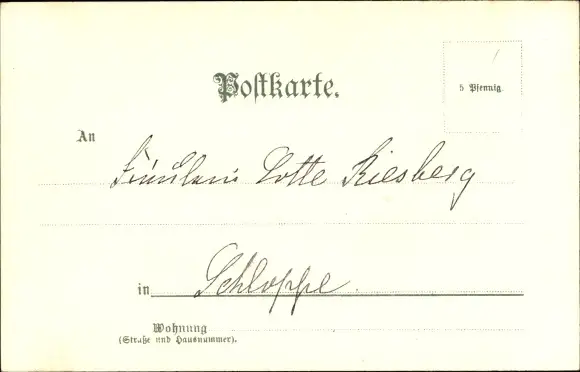 Postkarte.
5 Pfennig.
An
Fräulein Lotte Riesberg
in Schloppe.
Wohnung
(Straße und Hausnummer).